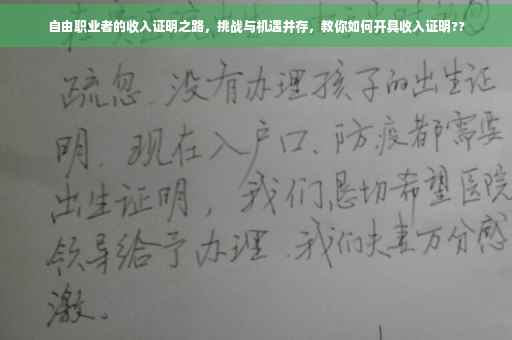 自由职业者的收入证明之路，挑战与机遇并存，教你如何开具收入证明??
疏忽.没有办理孩子的出生证
明.现在入户口、防疫都需要
出生证明，我们恳切希望医院
领导给予办理.我们夫妻万分感
激。